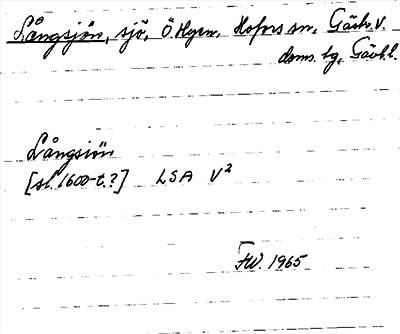 Långsjön, sjö, Ö. Hyen, Hofors sn, Gästr. V.
doms. tg, Gävl. l.
Långsiön
[sl. 1600-t.?] LSA V²
FW. 1965